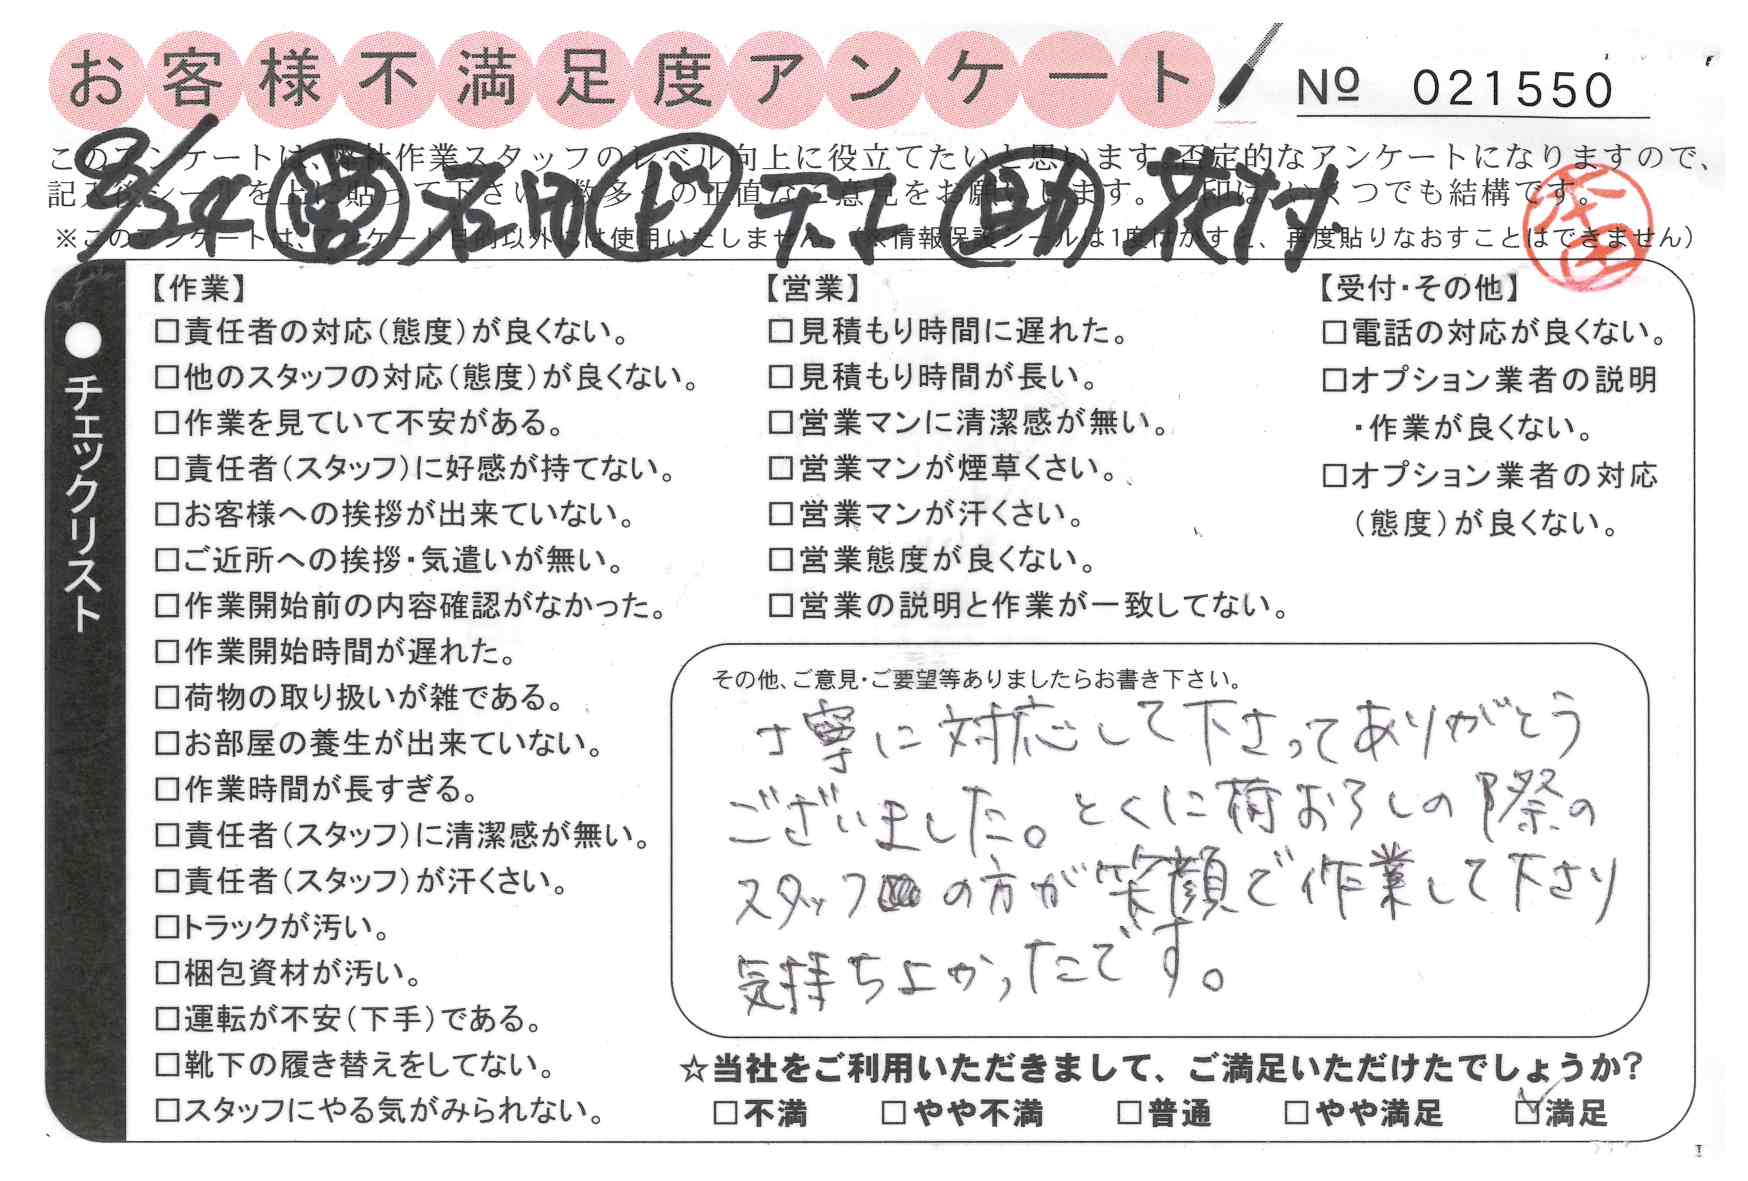 お客様不満足度アンケート
№ 021550
このアンケートは、弊社作業スタッフのレベル向上に役立てたいと思います。否定的なアンケートになりますので、
記入後シールを上に貼って下さい。数多くの正直なご意見をお願いします。 印は、いくつでも結構です。
※このアンケートは、アンケート目的以外には使用いたしません。(※情報保護シールは1度はがすと、再度貼りなおすことはできません)
8/24 営 ド 助
●チェックリスト
【作業】
□責任者の対応(態度)が良くない。
□他のスタッフの対応(態度)が良くない。
□作業を見ていて不安がある。
□責任者(スタッフ)に好感が持てない。
□お客様への挨拶が出来ていない。
□ご近所への挨拶・気遣いが無い。
□作業開始前の内容確認がなかった。
□作業開始時間が遅れた。
□荷物の取り扱いが雑である。
□お部屋の養生が出来ていない。
□作業時間が長すぎる。
□責任者(スタッフ)に清潔感が無い。
□責任者(スタッフ)が汗くさい。
□トラックが汚い。
□梱包資材が汚い。
□運転が不安(下手)である。
□靴下の履き替えをしてない。
□スタッフにやる気がみられない。
【営業】
□見積もり時間に遅れた。
□見積もり時間が長い。
□営業マンに清潔感が無い。
□営業マンが煙草くさい。
□営業マンが汗くさい。
□営業態度が良くない。
□営業の説明と作業が一致してない。
【受付・その他】
□電話の対応が良くない。
□オプション業者の説明
・作業が良くない。
□オプション業者の対応
(態度)が良くない。
その他、ご意見・ご要望等ありましたらお書き下さい。
丁寧に対応して下さってありがとう
ございました。とくに荷おろしの際の
スタッフの方が笑顔で作業して下さり
気持ちよかったです。
☆当社をご利用いただきまして、ご満足いただけたでしょうか?
□不満 □やや不満 □普通 □やや満足 ☑満足